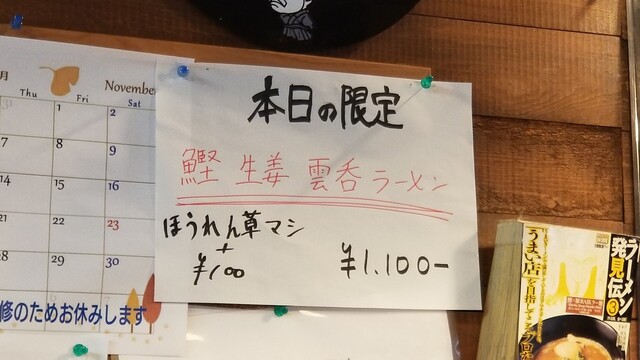 本日の限定
鰹 生姜 雲呑ラーメン
ほうれん草マシ
+
¥100
¥1.100-
月
November
Thu Fri Sat
1 2
7 8 9
14 15 16
21 22 23
28 29 30
修のためお休みします
ラーメン
発見伝
3
うまい店
を目指して